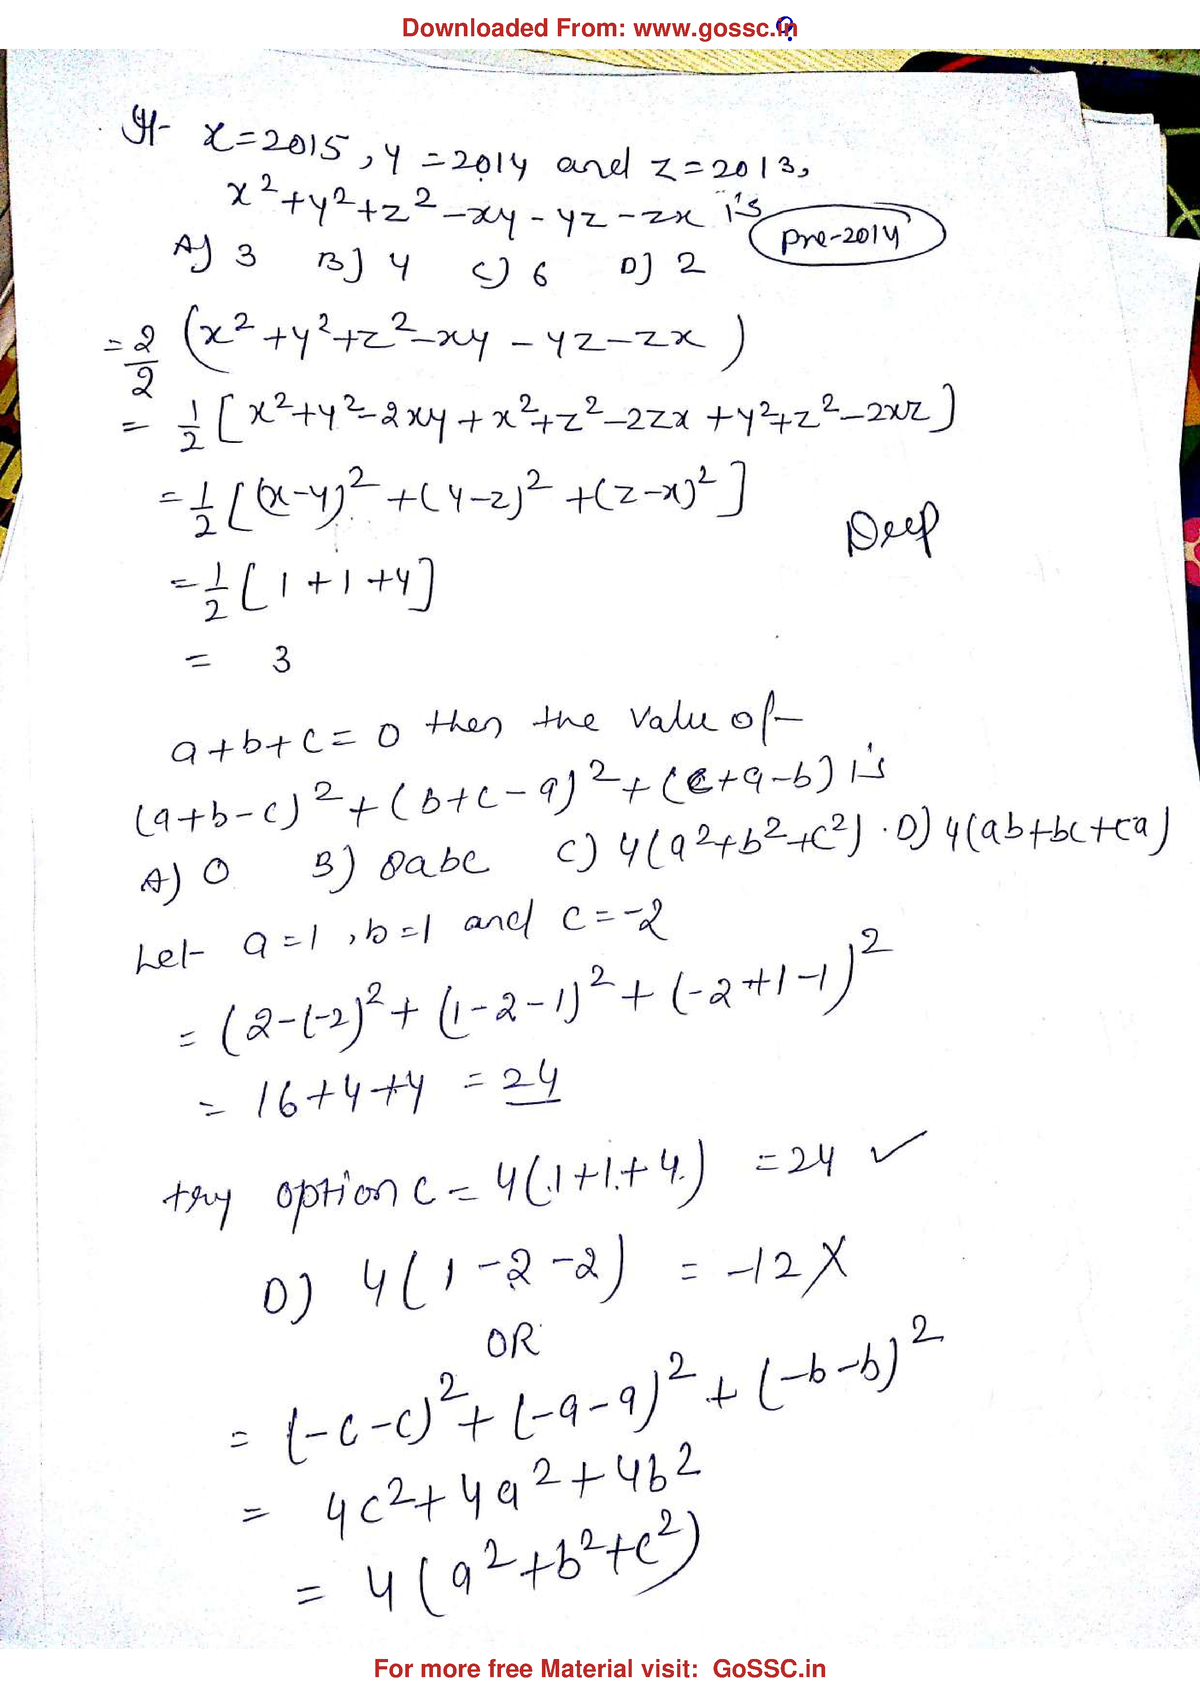 Downloaded From: www.gossc.in
If x=2015, y=2014 and z=2013,
x²+y²+z²-xy-yz-zx is
pre-2014
A) 3 B) 4 C) 6 D) 2
= 2/2 (x²+y²+z²-xy-yz-zx)
= 1/2 [x²+y²-2xy+x²+z²-2zx+y²+z²-2xz]
= 1/2 [(x-y)²+(y-z)²+(z-x)²]
Deep
= 1/2 [1+1+4]
= 3
a+b+c=0 then the value of
(a+b-c)²+(b+c-a)²+(c+a-b) is
A) 0 B) 8abc C) 4(a²+b²+c²). D) 4(ab+bc+ca)
Let a=1, b=1 and c=-2
= (2-(-2)²+(1-2-1)²+(-2+1-1)²
= 16+4+4 = 24
try option c = 4(1+1+4) = 24 ✓
D) 4(1-2-2) = -12 X
OR
= (-c-c)²+(-a-a)²+(-b-b)²
= 4c²+4a²+4b²
= 4(a²+b²+c²)
For more free Material visit: GoSSC.in